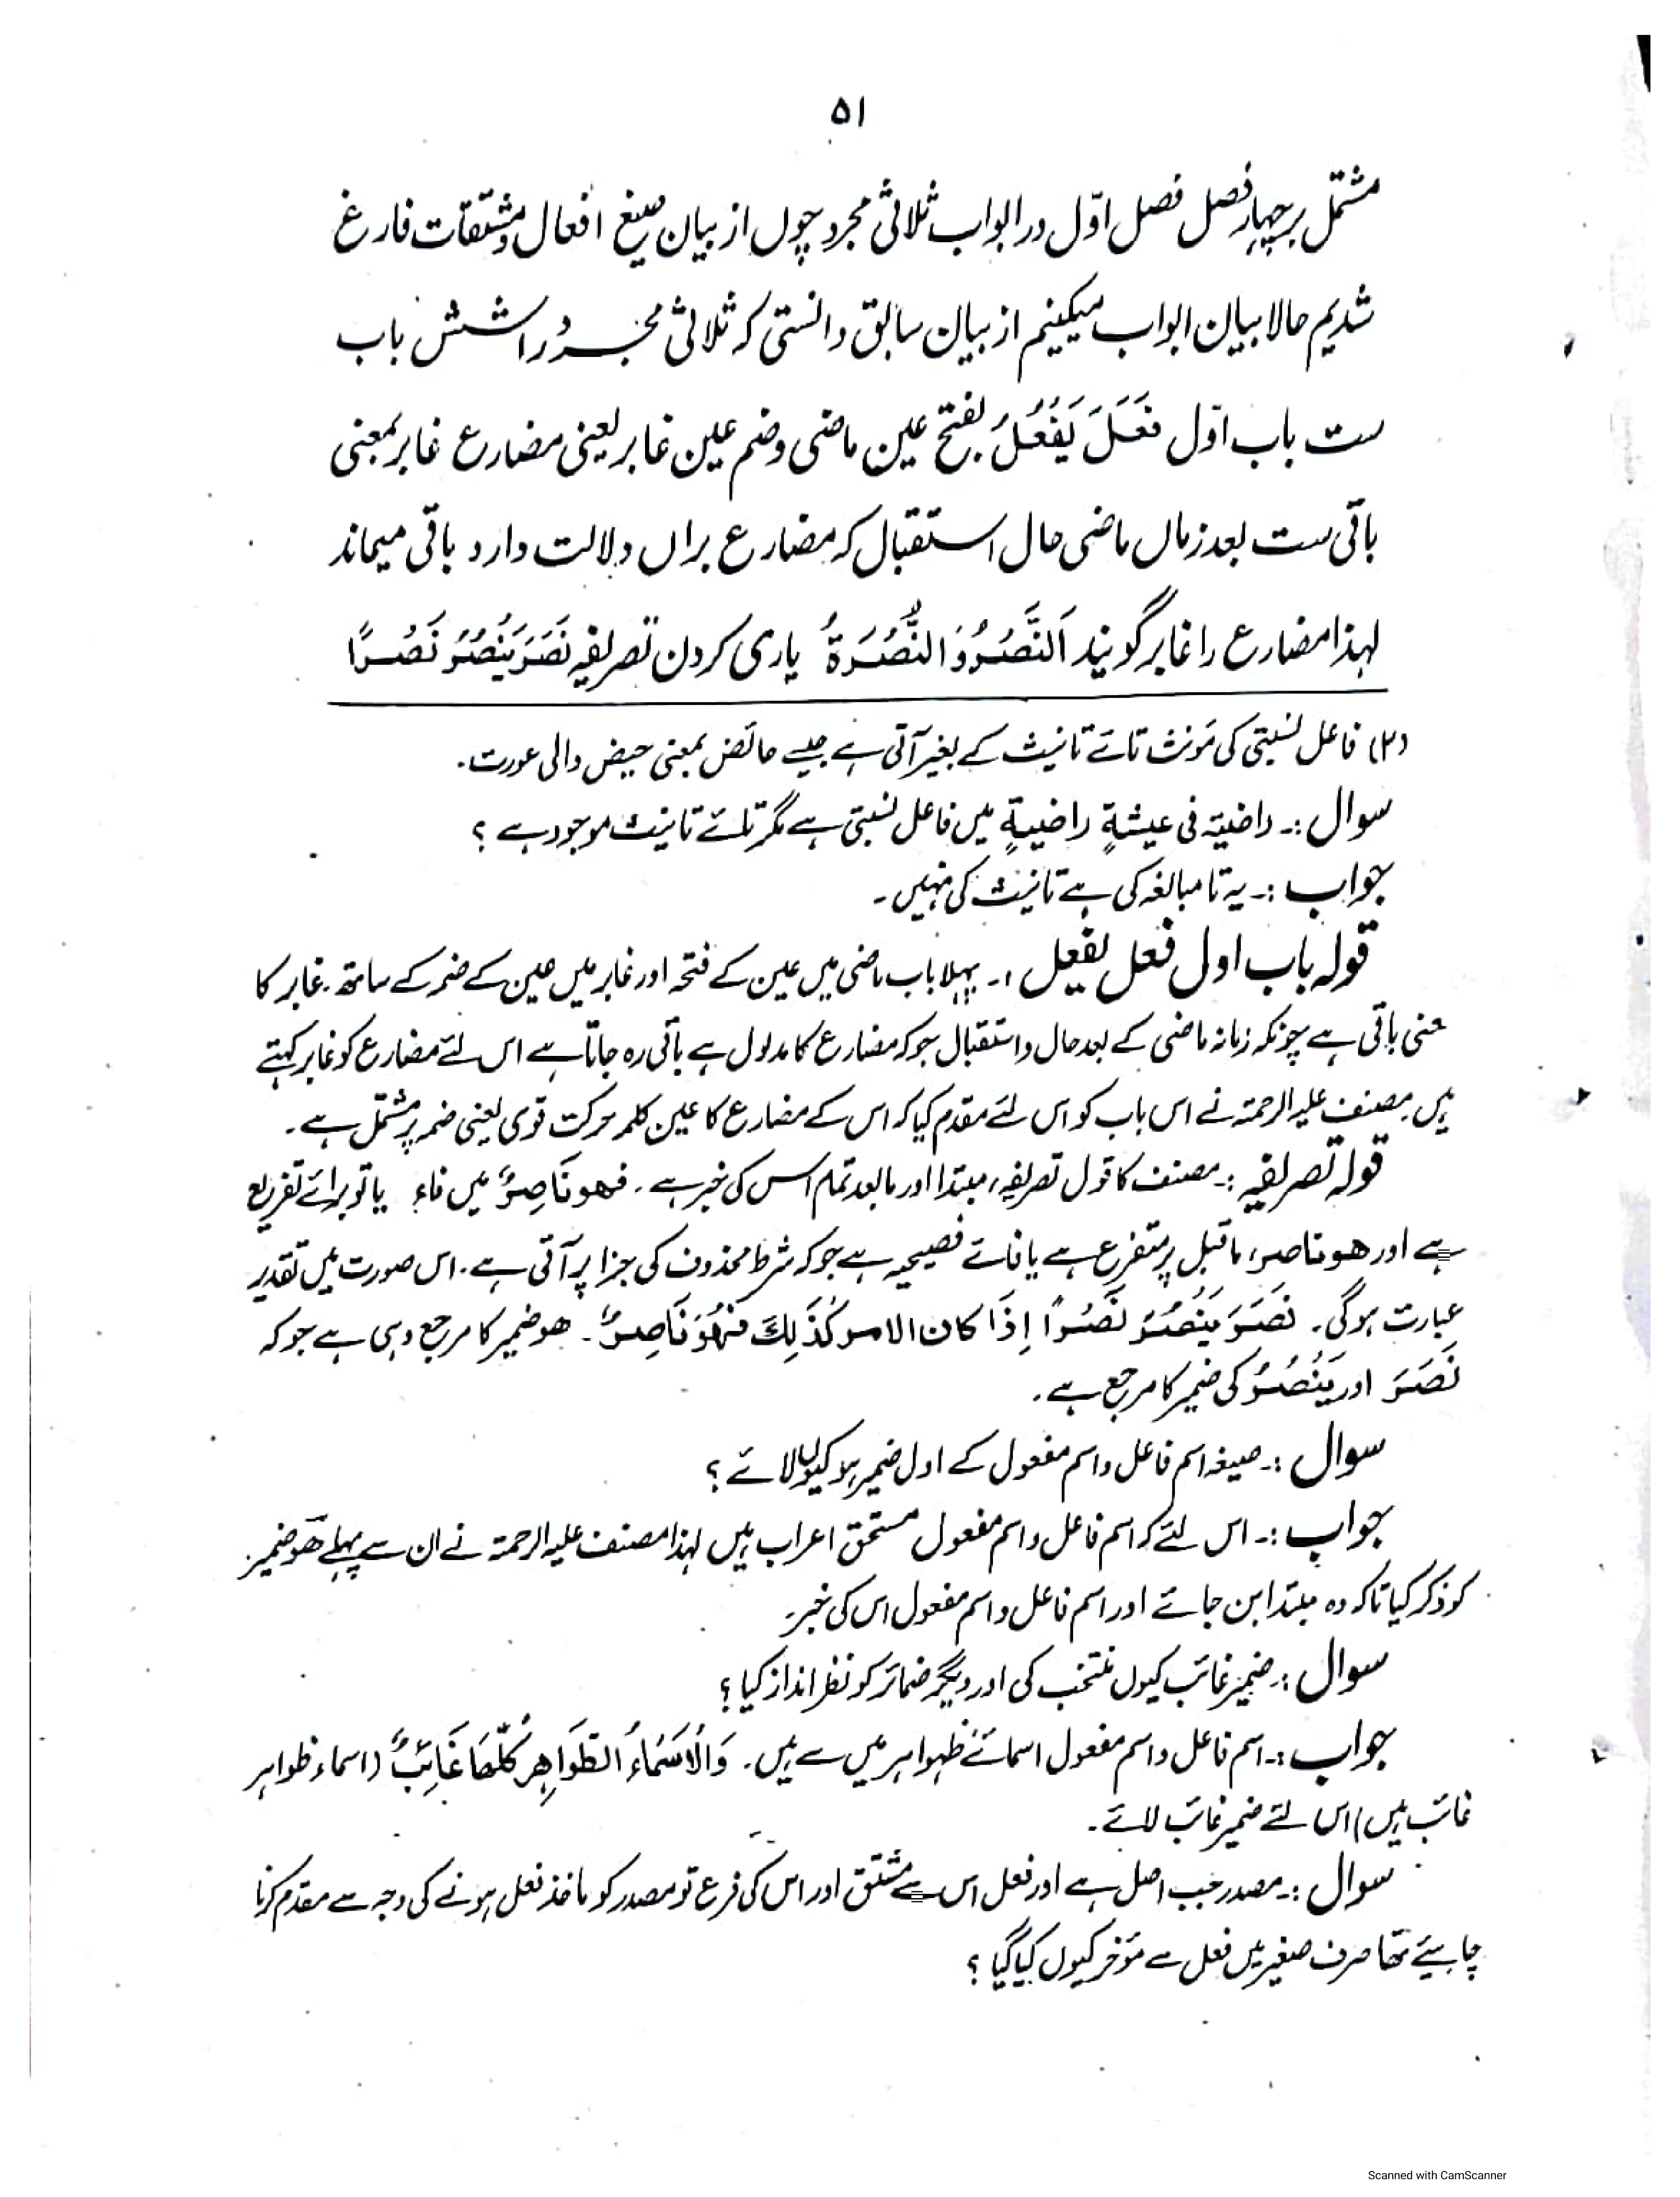 ۵۱
مشتمل برچہار فصل فصل اوّل در ابواب ثلاثی مجرد چوں از بیان صیغ افعال و مشتقات فارغ
شدیم حالا بیان ابواب میکنیم از بیان سابق دانستی کہ ثلاثی مجرد را شش باب
ست باب اوّل فَعَلَ يَفْعُلُ بفتح عین ماضی و ضم عین غابر یعنی مضارع غابر بمعنی
باقی ست بعد زماں ماضی حال استقبال کہ مضارع براں دلالت دارد باقی میماند
لہذا مضارع را غابر گویند اَلنَّصْرُ وَ النُّصْرَةُ یاری کردن تصریفہ نَصَرَ يَنْصُرُ نَصْرًا
(۲) فاعل نسبتی کی مؤنث تائے تانیث کے بغیر آتی ہے جیسے حائض بمعنی حیض والی عورت۔
سوال :۔ راضیۃ فی عیشةٍ راضیةٍ میں فاعل نسبتی ہے مگر تائے تانیث موجود ہے ؟
جواب :۔ یہ تا مبالغہ کی ہے تانیث کی نہیں۔
قولہ باب اول فعل یفعل :۔ پہلا باب ماضی میں عین کے فتحہ اور غابر میں عین کے ضمہ کے ساتھ۔ غابر کا
معنی باقی ہے چونکہ زمانہ ماضی کے بعد حال و استقبال جو کہ مضارع کا مدلول ہے باقی رہ جاتا ہے اس لئے مضارع کو غابر کہتے
ہیں۔ مصنف علیہ الرحمۃ نے اس باب کو اس لئے مقدم کیا کہ اس کے مضارع کا عین کلمہ حرکت قوی یعنی ضمہ پر مشتمل ہے۔
قولہ تصریفہ :۔ مصنف کا قول تصریفہ، مبتدا اور مابعد تمام اس کی خبر ہے۔ فھو نَاصِرٌ میں فاء یا تو برائے تفریع
ہے اور ھو ناصر، ماقبل پر متفرع ہے یا فائے فصیحیہ ہے جو کہ شرط محذوف کی جزا پر آتی ہے۔ اس صورت میں تقدیر
عبارت ہوگی۔ نَصَرَ يَنْصُرُ نَصْرًا إِذَا كان الامر كَذٰلِكَ فَهُوَ نَاصِرٌ۔ ھو ضمیر کا مرجع وہی ہے جو کہ
نَصَرَ اور يَنْصُرُ کی ضمیر کا مرجع ہے۔
سوال :۔ صیغہ اسم فاعل و اسم مفعول کے اول ضمیر ہو کیوں لائے ؟
جواب :۔ اس لئے کہ اسم فاعل و اسم مفعول مستحق اعراب ہیں لہذا مصنف علیہ الرحمۃ نے ان سے پہلے ھو ضمیر
کو ذکر کیا تاکہ وہ مبتدا بن جائے اور اسم فاعل و اسم مفعول اس کی خبر۔
سوال :۔ ضمیر غائب کیوں منتخب کی اور دیگر ضمائر کو نظر انداز کیا ؟
جواب :۔ اسم فاعل و اسم مفعول اسمائے ظہواہر میں سے ہیں۔ وَالْاَسْمَاءُ الظَّوَاهِرُ كُلُّهَا غَائِبٌ (اسماء ظواہر
غائب ہیں) اس لئے ضمیر غائب لائے۔
سوال :۔ مصدر جب اصل ہے اور فعل اس سے مشتق اور اس کی فرع تو مصدر کو ماخذ فعل ہونے کی وجہ سے مقدم کرنا
چاہیئے تھا صرف صغیر میں فعل سے مؤخر کیوں کیا گیا ؟
Scanned with CamScanner